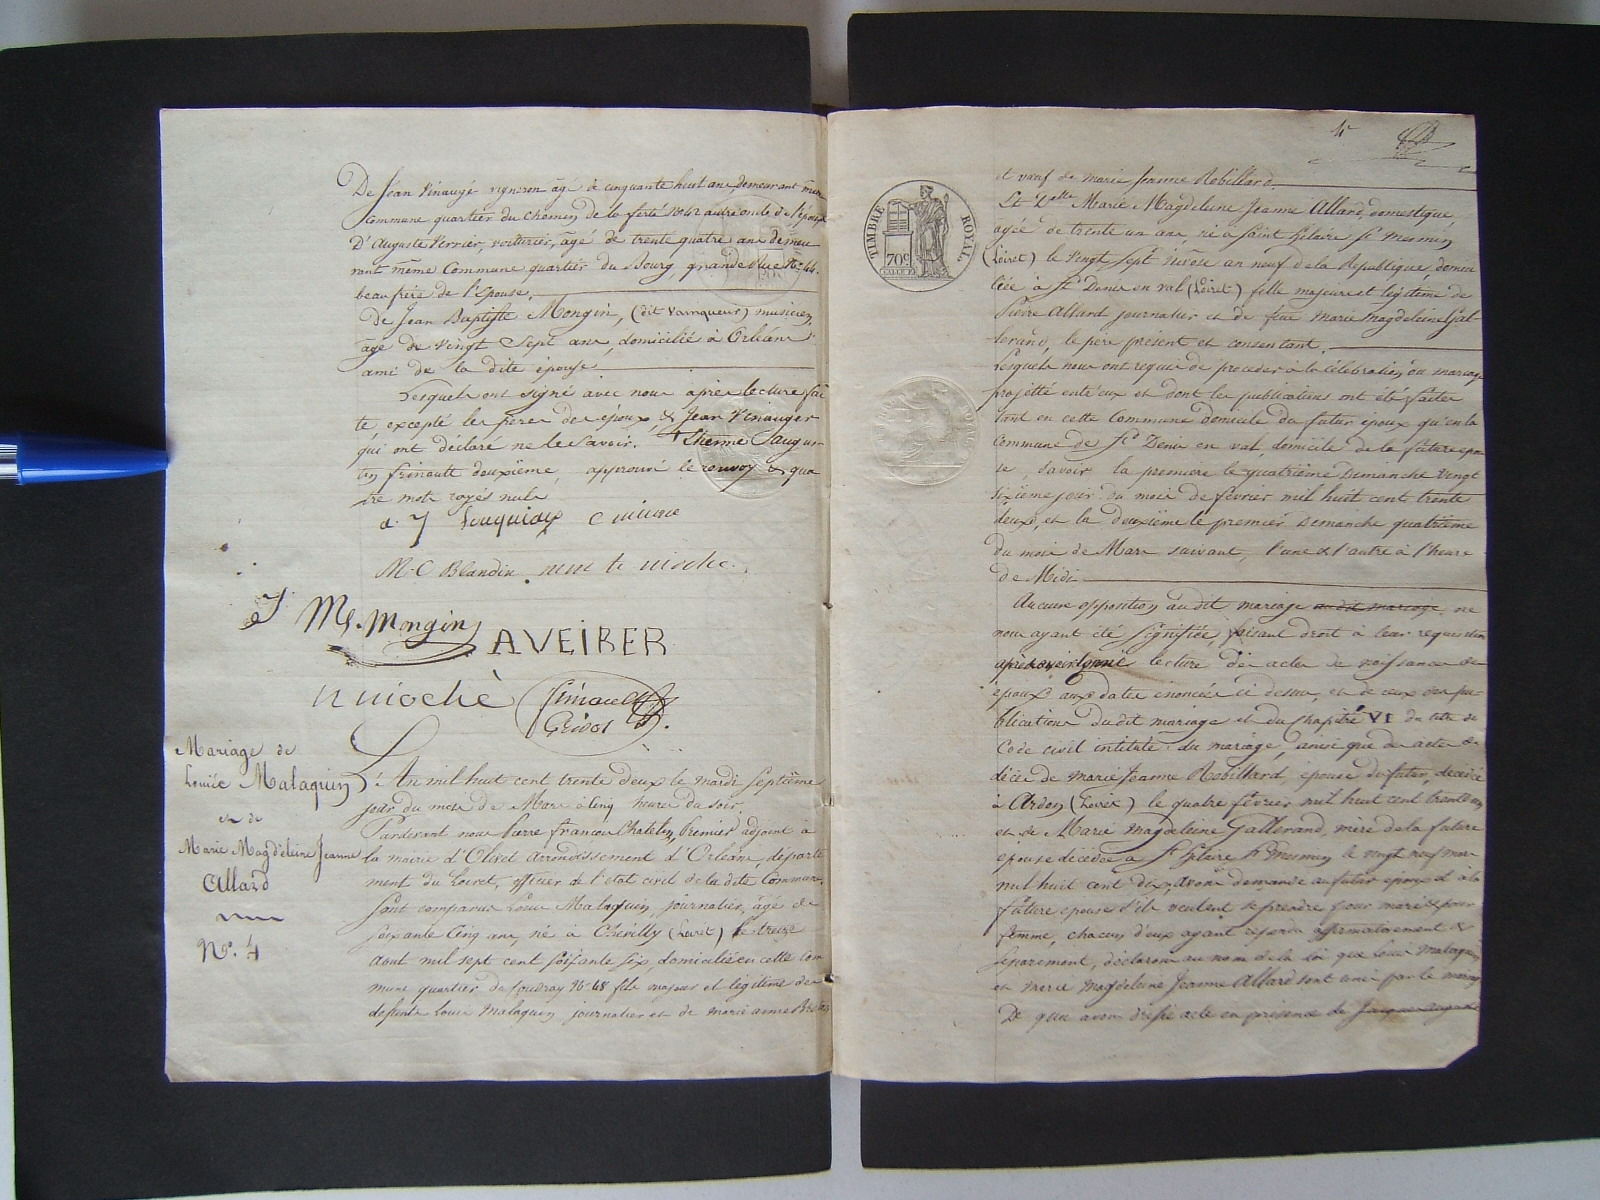 De Jean Vinaugé vigneron âgé de cinquante huit ans, demeurant même
Commune quartier du chemin de la ferté No 42 autre oncle de l'époux
D'Auguste Vernier, voiturier, âgé de trente quatre ans demeu
rant même Commune quartier du Bourg, grande Rue No 44.
beau frère de l'épouse.
De Jean Baptiste Mongin, (dit Vainqueur) musicien,
âgé de vingt sept ans, domicilié à Orléans
ami de la dite épouse
Lesquels ont signé avec nous après lecture fai
te excepté les pères des époux, & Jean Vinauger
qui ont déclaré ne le savoir.
deuxième, approuvé le renvoy & qua
tre mots rayés nuls
M. C Blandin
Mongin
AVEIRER
nuioche
Mariage de
Louis Malaquin
et de
Marie Magdeleine Jeanne
Allard
No. 4
L'An mil huit cent trente deux le mardi septième
jour du mois de Mars à cinq heures du soir.
Pardevant nous Pierre françois Chatelin, Premier adjoint à
la mairie d'Olivet arrondissement d'Orléans, départe
ment du Loiret, officier de l'état civil de la dite Commune,
sont comparus Louis Malaquin, journalier, âgé de
soixante cinq ans, né à Chevilly (Loiret) le treize
aout mil sept cent soixante six, domicilié en cette com
mune quartier du Coudray No 48 fils majeur et légitime de
defunts Louis Malaquin journalier et de marie anne
et veuf de marie Jeanne Robillard.
TIMBRE ROYAL
70c
Et Delle Marie Magdeleine Jeanne Allard, domestique,
agée de trente un ans, née à Saint hilaire St mesmin
(Loiret) le vingt sept nivose an neuf de la République, domici
liée à St Denis en val (Loiret) fille majeure et légitime de
Pierre Allard journalier et de feue Marie Magdeleine Gal
lerand, le père présent et consentant.
Lesquels nous ont requis de proceder à la célébration du mariage
projetté entr'eux et dont les publications ont été faites
tant en cette Commune domicile du futur époux qu'en la
Commune de St Denis en val, domicile de la future epou
se, savoir la premiere le quatrième Dimanche vingt
sixième jour du mois de février mil huit cent trente
deux, et la deuxième le premier Dimanche quatrième
du mois de Mars suivant, l'une & l'autre à l'heure
de Midi
Aucune opposition au dit mariage au dit mariage, ne
nous ayant été signifiée, faisant droit à leur requisition
après avoir donné lecture des actes de naissance des
epoux aux dates enoncées ci dessus, et de ceux des pu-
blications du dit mariage et du Chapitre VI du titre du
Code civil intitulé: du mariage, ainsi que des actes de
décès de marie Jeanne Robillard, épouse du futur, decedée
à Ardon (Loiret) le quatre février mil huit cent trente un
et de Marie magdeleine Gallerand, mère de la future
epouse décédée à St hilaire St mesmin le vingt neuf mars
mil huit cent dix, avons demandé au futur epoux et à la
future epouse s'ils veulent se prendre pour mari & pour
femme, chacun d'eux ayant repondu affirmativement &
séparement, déclarons au nom de la loi que Louis Malaquin
et Marie Magdeleine Jeanne Allard sont unis par le mariage
De quoi avons dressé acte en présence de